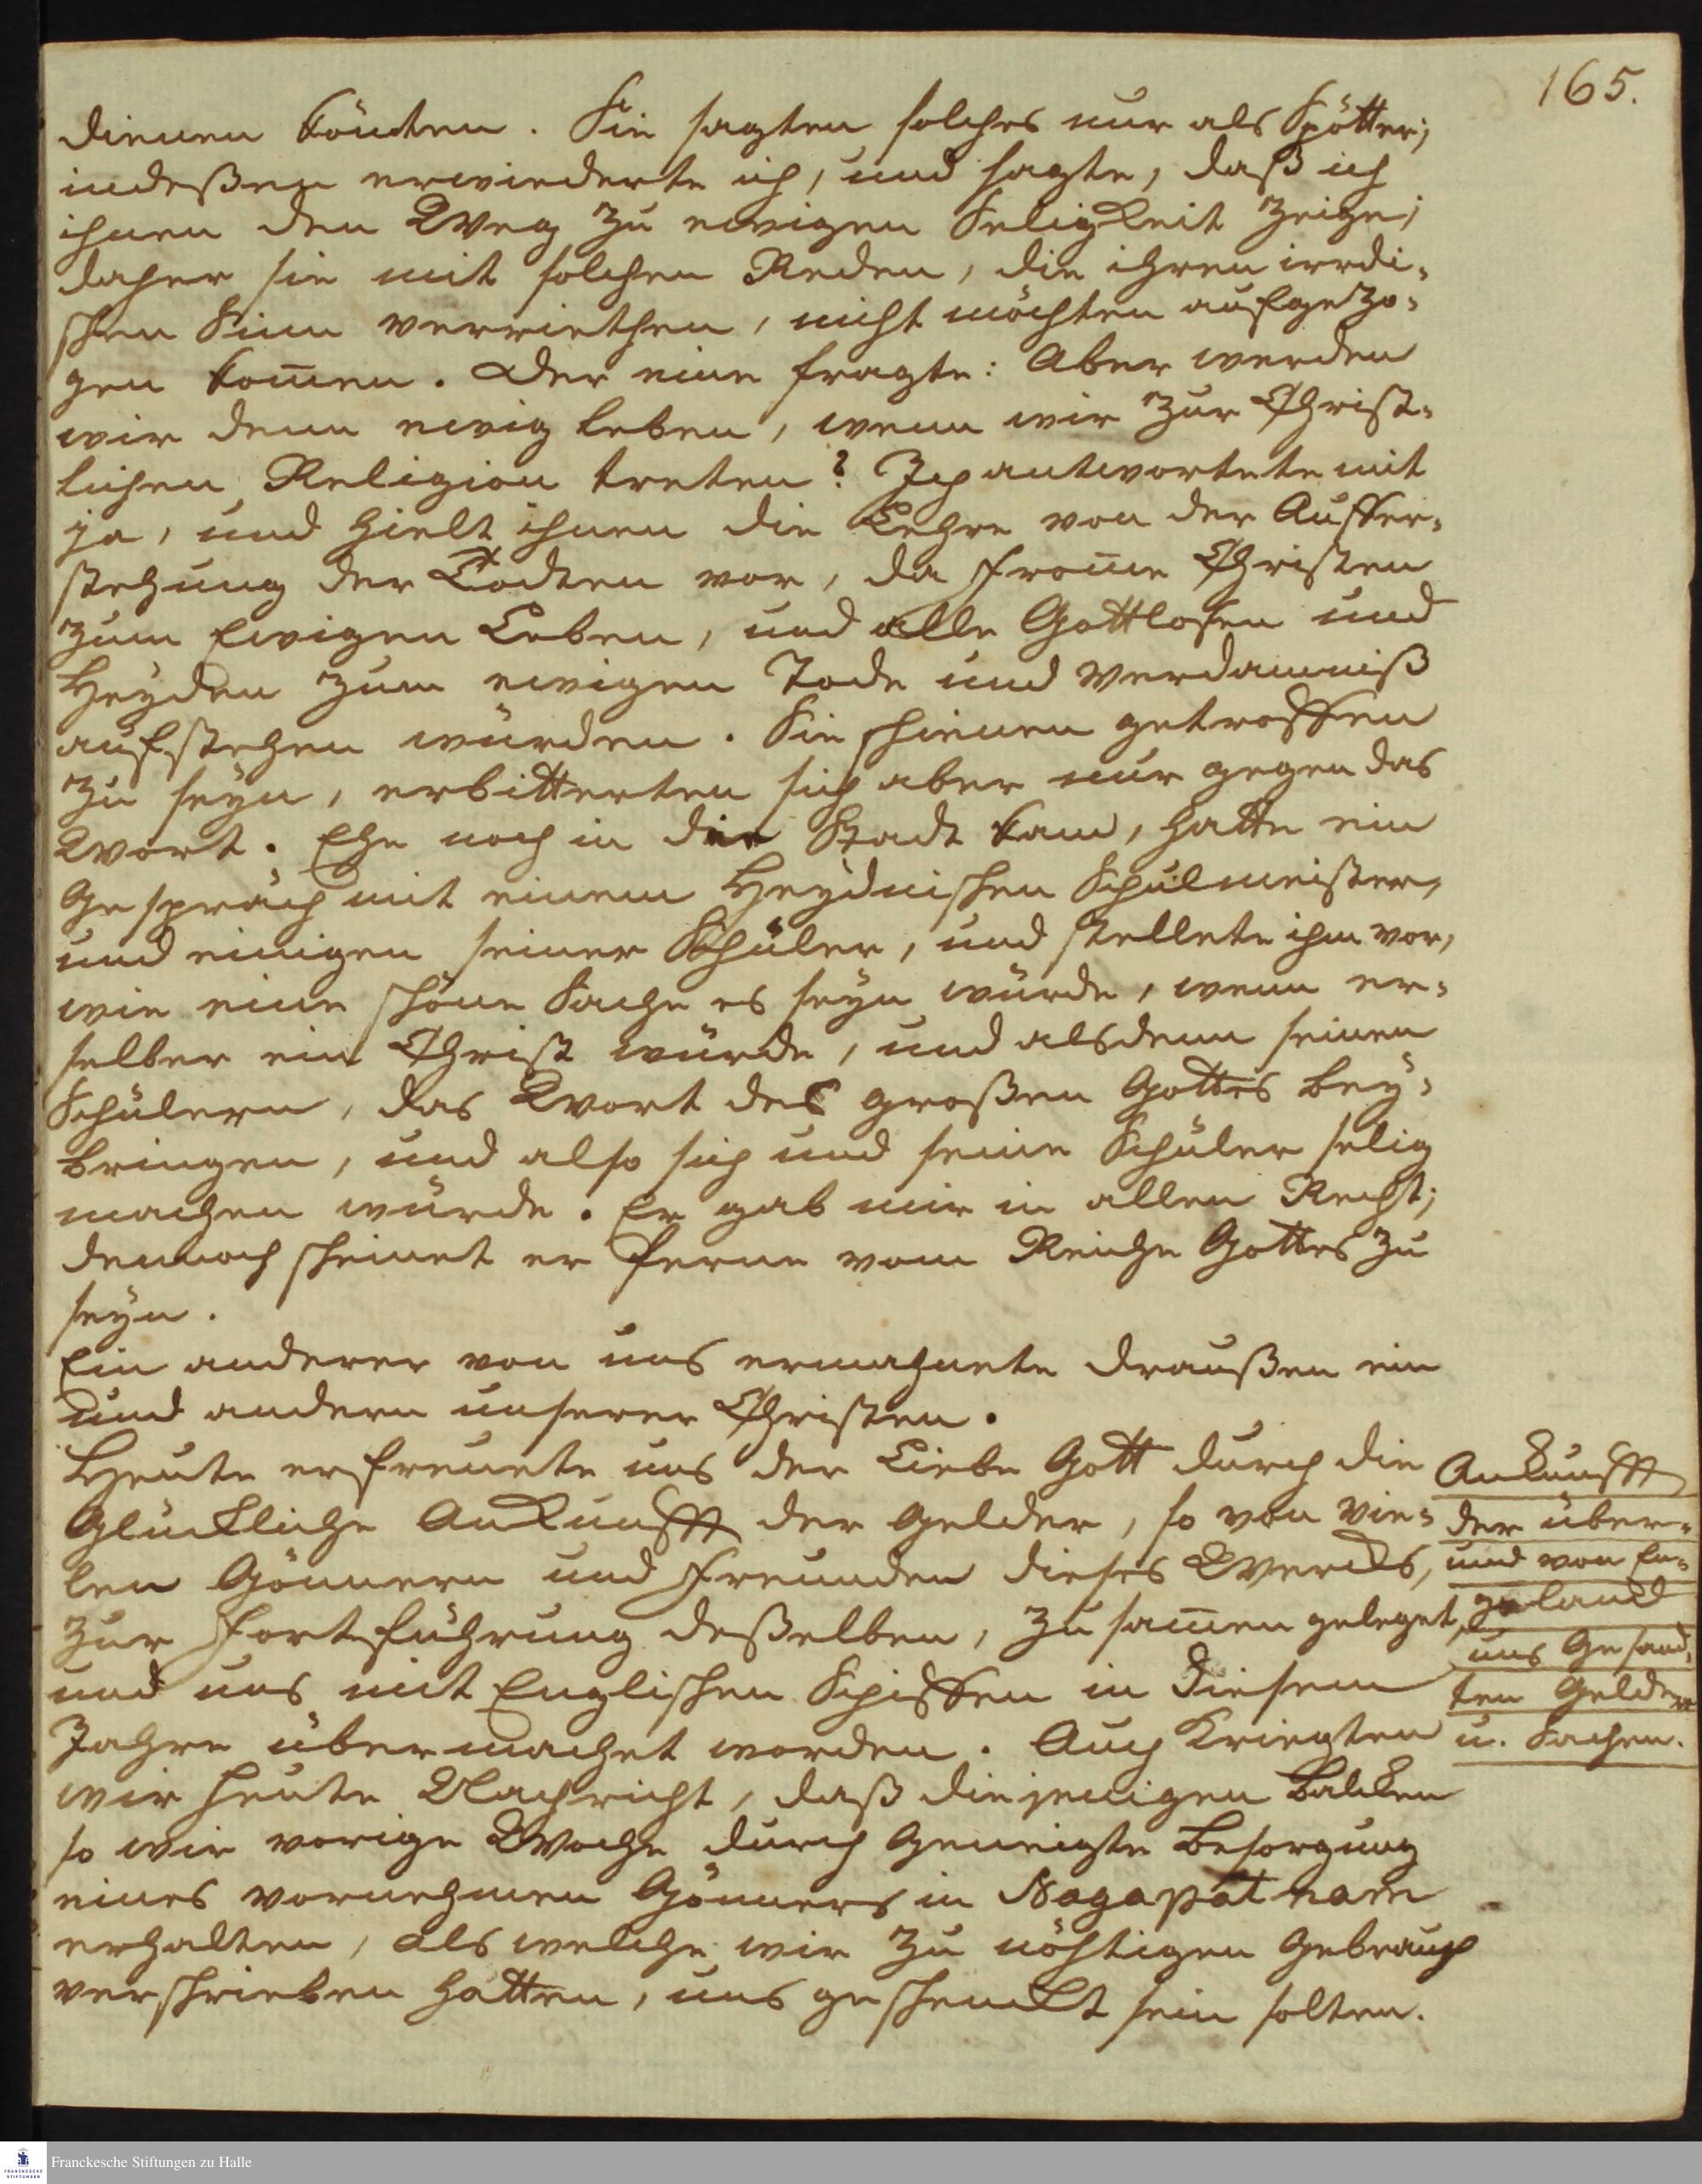 165.
dienen könten. Sie sagten solches nur als Spötter;
indeßen erwiederte ich, und sagte, daß ich
ihnen den Weg zu ewigen Seligkeit zeige;
daher sie mit solchen Reden, die ihren irrdi-
schen Sinn verriethen, nicht möchten aufgezo-
gen kom̄en. Der eine fragte: Aber werden
wir denn ewig leben, wenn wir zur Christ-
lichen Religion treten? Ich antwortete mit
ja, und hielt ihnen die Lehre von der Auffer-
stehung der Todten vor, da from̄e Christen
zum Ewigen Leben, und alle Gottlosen und
Heyden zum ewigen Tode und Verdamniß
aufstehen würden. Sie schienen getroffen
zu seyn, erbitterten sich aber nur gegen das
Wort. Ehe noch in die Stadt kam, hatte ein
Gespräch mit einem Heydnischen Schulmeister,
und einigen seiner Schüler, und stellete ihm vor,
wie eine schöne Sache es seyn würde, wenn er-
selber ein Christ würde, und alsdenn seinen
Schülern, das Wort des großen Gottes bey-
bringen, und also sich und seine Schüler selig
machen würde. Er gab mir in allen Recht;
dennoch scheinet er ferne vom Reiche Gottes zu
seyn.
Ein anderer von uns ermahnete draußen ein
und andern unserer Christen.
Heute erfreuete uns der Liebe Gott durch die
Glückliche Ankunfft der Gelder, so von vie-
len Gönnern und Freunden dieses Wercks,
zur Fortführung deßelben, zusam̄en geleget,
und uns mit Englischen Schiffen in diesem
Jahre übermachet worden. Auch kriegten
wir heute Nachricht, daß diejenigen Balcken
so wir vorige Woche durch Geneigte Besorgung
eines vornehmen Gönners in Nagapatnam
erhalten, als welche wir zu nöhtigen Gebrauch
verschrieben hatten, uns geschenckt sein solten.
Ankunfft
der über-
und von En-
geland
uns Gesand-
ten Gelder
u. Sachen.
Franckesche Stiftungen zu Halle
FRANCKESCHE
STIFTUNGEN